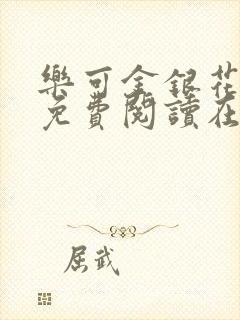 樂可金銀花
免費閱讀在
屈武